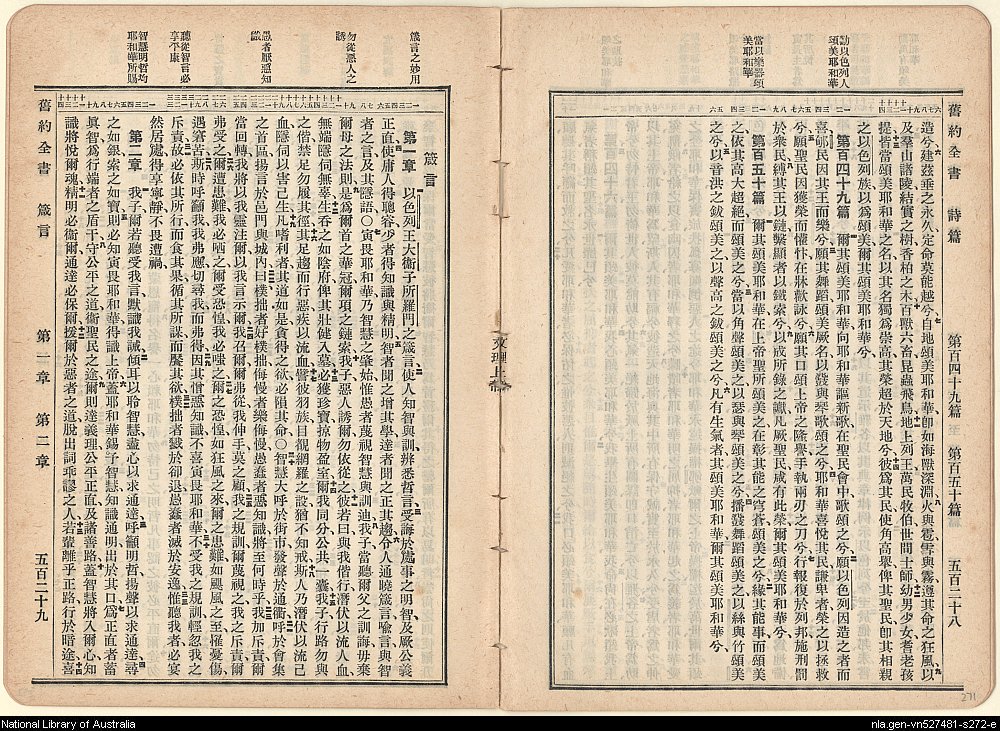 勸以色列人
頌美耶和華
當以樂器頌
美耶和華
舊約全書 詩篇 第百四十九篇 至 第百五十篇 五百二十八
造之兮建玆垂之永久定命莫能越兮自地頌美耶和華卽如海獸深淵火與雹雪與霧遵其命之狂風以
及羣山諸陵結實之樹香柏之木百獸六畜昆蟲飛鳥地上列王萬民牧伯世間士師幼男少女耆老孩
提皆當頌美耶和華之名以其名獨爲崇高其榮超於天地兮彼爲其民使角高舉俾其聖民卽其相親
之以色列族以爲頌美爾其頌美耶和華兮
第百四十九篇 爾其頌美耶和華向耶和華謳新歌在聖民會中歌頌之兮願以色列因造之者而
喜郇民因其王而樂兮願其舞蹈頌美厥名以鼗與琴歌頌之兮耶和華喜悅其民謙卑者榮之以拯救
兮願聖民因獲榮而懽忭在牀歡詠兮願其口頌上帝之隆譽手執兩刃之刀兮行報復於列邦施刑罰
於衆民縛其王以鏈繫顯者以鐵索兮以成所錄之讞凡厥聖民咸有此榮爾其頌美耶和華兮
第百五十篇 爾其頌美耶和華在上帝聖所頌美之在彰其能之穹蒼頌美之兮緣其能事而頌美
之依其高大超絕而頌美之兮當以角聲頌美之以瑟與琴頌美之兮播鼗舞蹈頌美之以絲與竹頌美
之兮以音洪之鈸頌美之以聲高之鈸頌美之兮凡有生氣者其頌美耶和華爾其頌美耶和華兮
文理上
箴言之妙用
勿從惡人之
誘
愚者厭惡知
識
聽從智言必
享平康
智慧明哲均
耶和華所賜
箴言
第一章 以色列王大衞子所羅門之箴言使人知智與訓辨悉哲言受誨於處事之明智及厥公義
正直使庸人得聰睿少者得知識與精明智者聞之增其學達者聞之正其趨令人通曉箴言喩言與智
者之言及其隱語〇寅畏耶和華乃智慧之肇始惟愚者蔑視智慧與訓迪我子當聽爾父之訓誨毋棄
爾母之法則是爲爾首之華冠爾項之鏈索我子惡人誘爾勿依從之彼若曰與我儕行潛伏以流人血
無端隱伺無辜生吞之如陰府俾其壯健入墓必獲珍寶掠物盈室爾我同分公共一囊我子行路勿與
之偕禁足勿履其徑其足趨而行惡疾以流血譬彼羽族目覩網羅之設猶不知戒斯人乃潛伏以流己
血隱伺以害己生凡嗜利者其道如是貪得之欲必隕其命〇智慧大呼於街市發聲於通衢呼於會集
之首區揚言於邑門與城內曰樸拙者好樸拙侮慢者樂侮慢愚蠢者惡知識將至何時乎我加斥責爾
當回轉我將以我靈注爾以我言示爾我召爾爾弗從我伸手莫之顧我之規訓爾蔑視之我之斥責爾
弗受之爾遭患難我必哂之爾受恐惶我必嗤之爾之恐惶如狂風之來爾之患難如颶風之至罹憂傷
遇窘苦斯時呼籲我我弗應切尋我而弗得因其憎惡知識不喜寅畏耶和華不受我之規訓輕忽我之
斥責故必依其所行而食其果循其所謀而饜其欲樸拙者戮於卻退愚蠢者滅於安逸惟聽我者必宴
然居處得享寧靜不畏遭禍
第二章 我子爾若聽受我言默識我誡傾耳以聆智慧盡心以求通達呼籲明哲揚聲以求通達尋
之如銀索之如寶則必知寅畏耶和華得識上帝蓋耶和華錫予智慧知識通明出於其口爲正直者蓄
眞智爲行端者之盾干守公平之道衞聖民之途爾則達義理公平正直及諸善路蓋智慧將入爾心知
識將悅爾魂精明必衞爾通達必保爾援爾於惡者之道脫出詞乖謬之人若輩離乎正路行於暗途喜
舊約全書 箴言 第一章 第二章 五百二十九
271
National Library of Australia
nla.gen-vn527481-s272-e